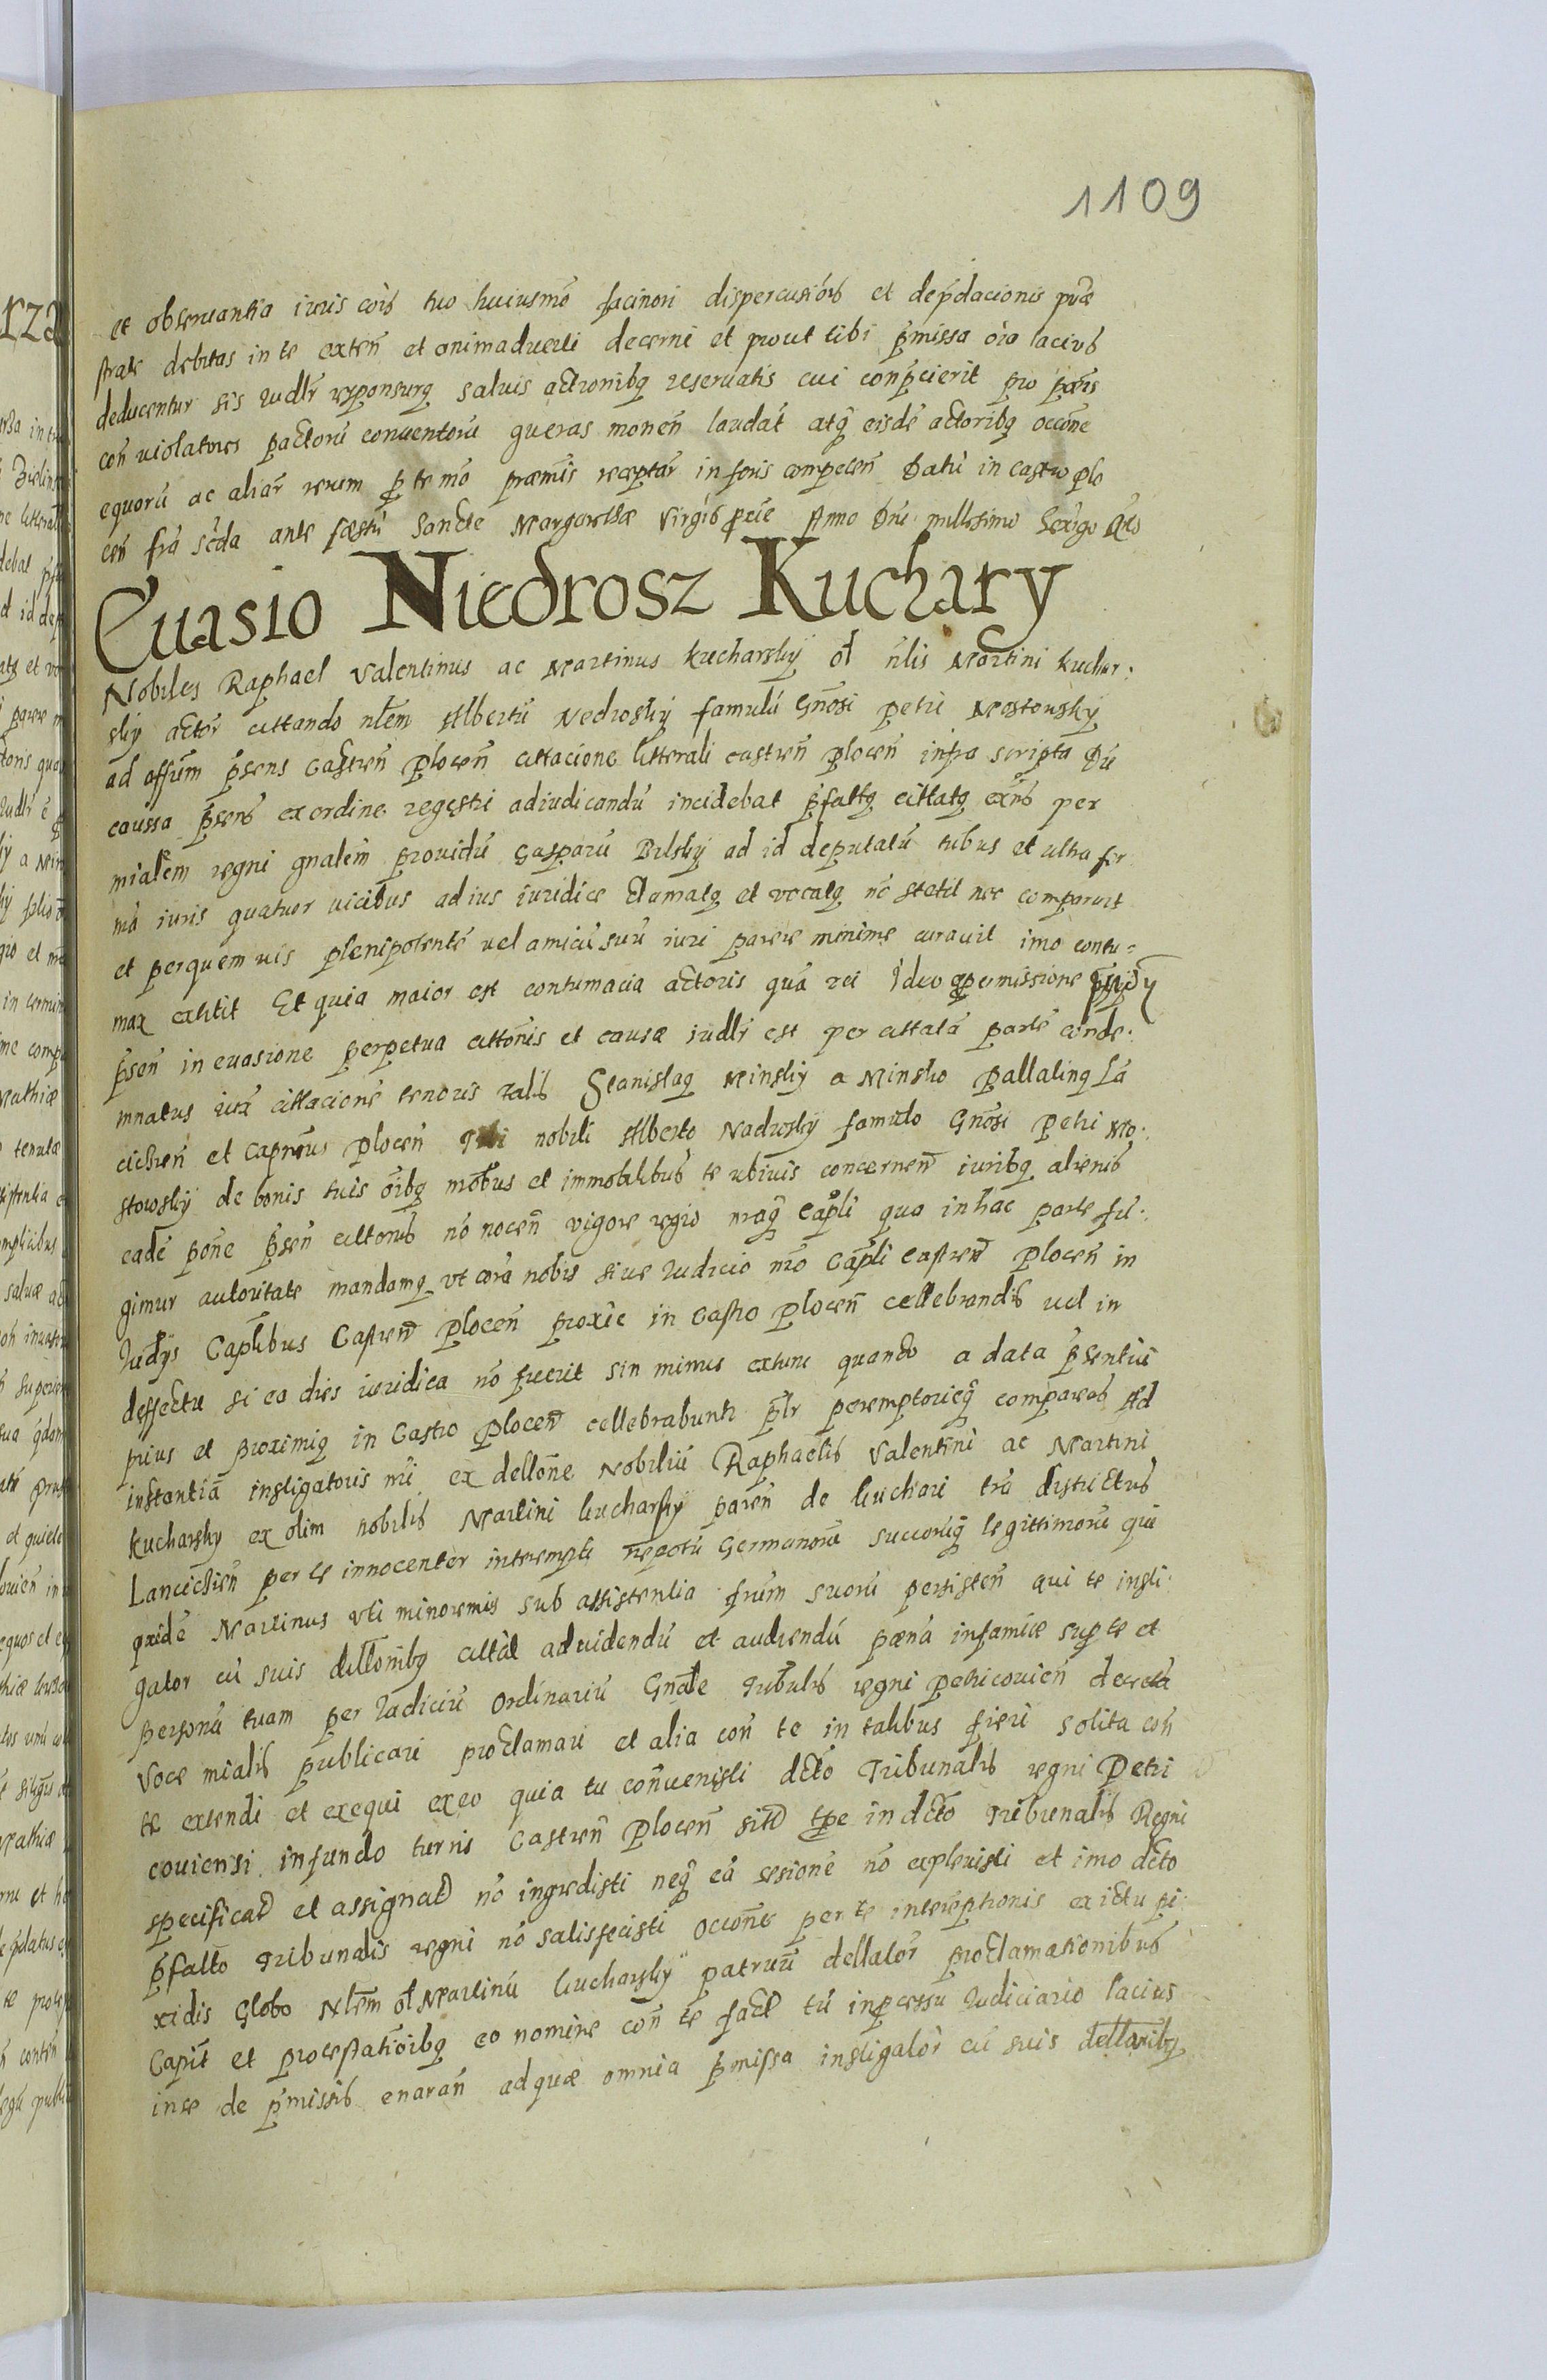 1109
et obseruantia iuris cõis tuo huiusmõ facinori dispercusiõis et dep̃dacionis
strate debitas in te exteñ et animadverti decerni et prout tibi p̃missa oĩa lacius
deducentur sis iudlr̃ responsurq saluis actionibq reseruatis cui comp̃cierit pro
coñ violatores pactorũ conuentorũ queras moneñ laudat̃ atq̃ eisdẽ actoribq occõne
equorũ ac aliar̃ rerum p̱ te mõ præmis receptar̃ in foris competeñ Datũ in castro plo
ceñ fr̃a sc̃da ante fæstũ Sanctæ Margarethæ virgis Anno Dñi millesimo
Euasio Niedrosz Kuchary
Nobiles Raphael Valentinus ac Martinus Kucharskÿ ol̃ ñlis Martini Kuchar:
skÿ actor̃ cittando nl̃em Albertũ Nedroskÿ famulũ Gñosi Petri Mostouskÿ
ad offm̃ p̃sens Castreñ Ploceñ cittacione litterali castreñ ploceñ infra scripta Dũ
caussa p̃sens ex ordine regestri adiudicandũ incidebat p̃fattq cittatq exñs per
mialẽm regni gnalẽm prouidũ Gasparũ Bilskÿ ad id deputatũ tribus et ultra for
mã iuris quatuor uicibus ad ius iuridice clamatq et vocatq nõ stetit nec comparuit
et per quem uis plenipotentẽ uel amicũ suũ iuri parere minime curauit imo contu=
max extitit Et quia maior est contumacia actoris quã rei Ideo ex permissione
p̃señ in euasione perpetua cittõnis et causæ iudlr̃ est per cittatã partẽ conde:
mnatus iuxta cittacionẽ tenoris talis Stanislaq Minskÿ a Minsko Pallatinq Lã
cicieñ et Capneus Ploceñ Tibi nobili Alberto Nadroskÿ famulo Gñosi Petri Mo:
stowskÿ de bonis tuis oĩbq mobus et immobilibus te ubiuis concerneñ iuribq alienis
eadẽ põne p̃señ cittonis nõ noceñ vigore regio maq̃ Capli qua in hac parte fũ:
gimur autoritate mandamq vt corã nobis siue Iudicio nr̃o Capli castreñ Ploceñ in
Iudÿs Caplibus Castreñ Ploceñ proxĩe in Castro Ploceñ cellebrandis uel in
deffectu si ea dies iuridica nõ fuerit sin minus extunc quando a data p̃sentiũ
prius et proximiq in Castro Ploceñ cellebrabuntr p̃lr peremptorieq̃ compareas Ad
instantiã instigatoris nr̃i ex dellõne Nobiliũ Raphaelis Valentini ac Martini
Kucharsky ex olim nobilis Martini Kucharskÿ pareñ de Kuchari tr̃a districtus
Lancicieñ per te innocenter interempti nepotũ Germanorũ succorũq legittimorũ qui
quidẽ Martinus vti minorennis sub assistentia frũm suorũ persisteñ qui te insti:
gator cũ suis dellonibq cittat ad uidendũ et audiendũ pænã infamiæ sup te et
personã tuam per Iudiciũ Ordinariũ Gnale Tribulis regni Petricouieñ decretã
voce mialis publicari proclamari et alia coñ te in talibus fieri solita coñ
te extendi et exequi ex eo quia tu coñuenisti dcto Tribunalis regni Petri
couiensi in fundo turris Castreñ Ploceñ sitũ tp̃e in dcto Tribunalis Regni
specificat̃ et assignat̃ nõ ingredisti neq̃ eã sesionẽ nõ expleuisti et imo dcto
p̃fatto Tribunalis regni nõ satisfecisti occõne per te interemptionis ex ictu pi:
xidis Globo Nlẽm ol̃ Martinũ Kucharskÿ patruũ dellator̃ proclamationibus
Capit̃ et protestationibq eo nomine coñ te fact̃ tũ in pcessu Iudiciario lacius
in se de p̃missis enarañ ad quæ omnia p̃missa instigator̃ cũ suis dellaribq